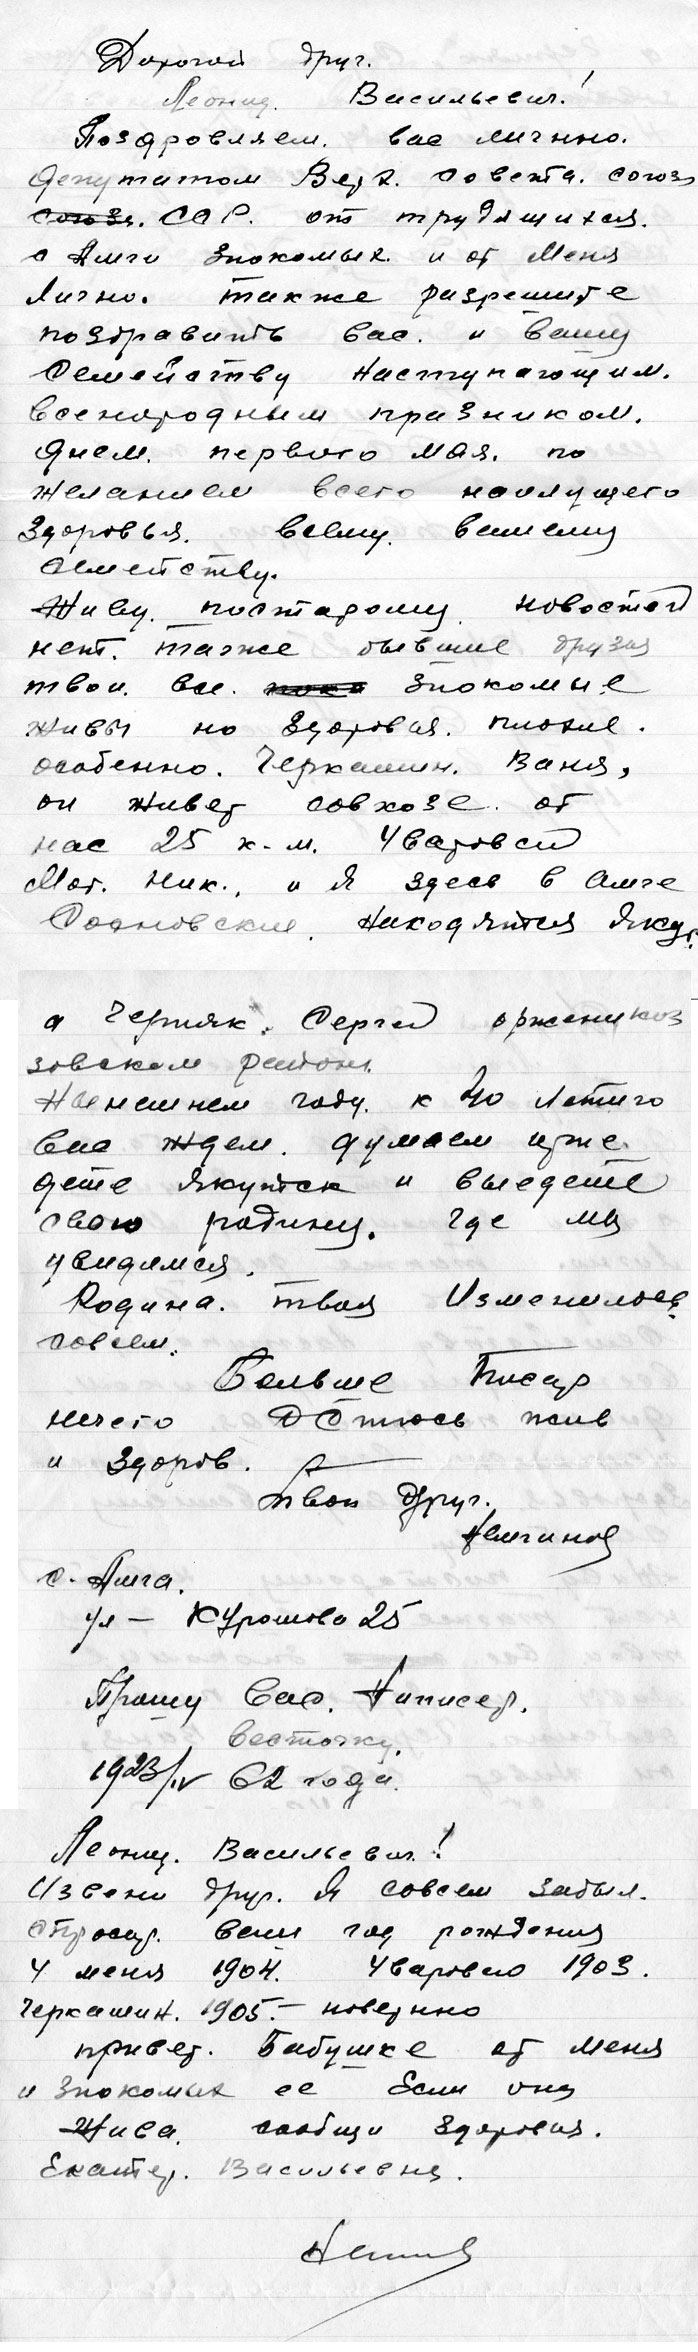 Дорогой друг.
Леонид. Васильевич!
Поздровляем. вас лично.
депутатом Верх. совета. союза
союза. ССР. от трудящихся.
с Амги знокомых. и от меня
лично. также разрешите
поздравить вас. и вашу
семейству наступающим.
всенородным празником.
днем. первого мая. по
желанием всего наилущего
здоровья. всему. вашему
семейству.
Живу. постарому. новостей
нет. также бывшие друзия
твои. все. пока знокомые
живы но здоровия. плохие.
особенно. Черкашин. Ваня,
он живет совхозе. от
нас 25 к-м. Уваровский
Мат. Ник., и я здесь в Амге
Находятся Якут.
а Черняк. Сергей орженикоз
зовском районе.
Нынешнем году. к 40 летию
вас ждем. думаем прие
дете Якутск и выедете
свою родину. где мы
увидимся.
Родина. твоя изменилось
совсем.
Больше писат
нечего остюсь жив
и здоров.
твой друг.
Немчинов
с. Амга.
ул — Курашова 25
Прошу вас. Написат.
весточку.
1923/IV 62 года.
Леонид. Васильевич!
Извени друг. я совсем забыл.
спросит. ваш год рождения
у меня 1904. Уварового 1903.
Черкашин. 1905. — новетнно
привет. Бабушке от меня
и знокомых ее Если она
Жива. сообщи здоровия.
Екатер. Васильевня.